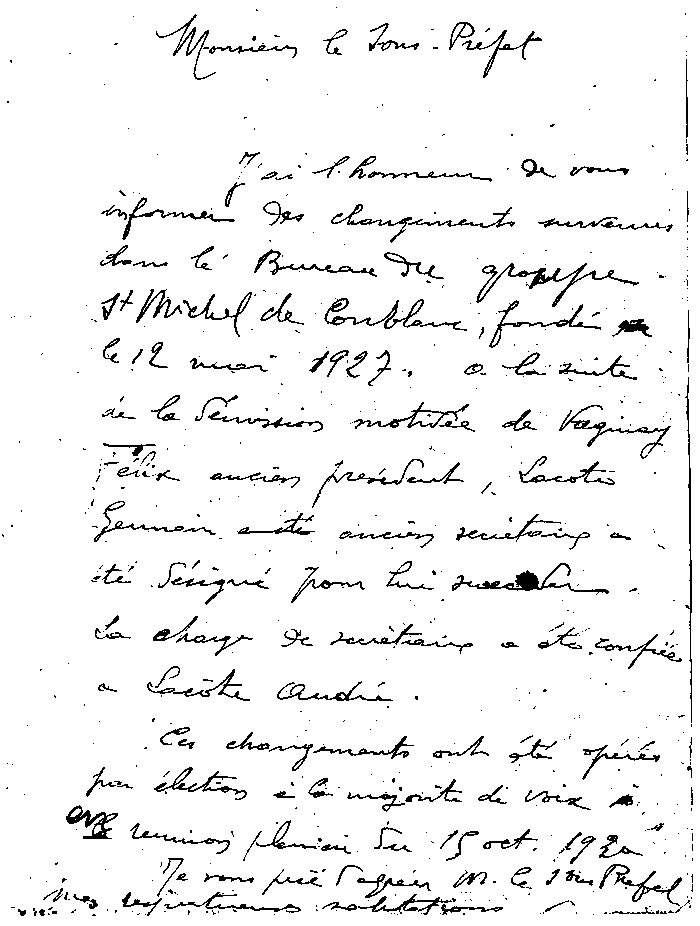 Monsieur le Sous-Préfet
J'ai l'honneur de vous
informer des changements survenus
dans le Bureau du groupe
St Michel de Conblanc, fondé
le 12 mai 1927. a la suite
de la démission motivée de Vaginay
Félix ancien président, Lacote
Germain ancien secrétaire a
été désigné pour lui succeder.
La charge de secrétaire a été confiée
a Lacôte André.
Ces changements ont été opérés
par élection à la majorité de voix
réunion plénière du 15 oct. 192
Je vous prie d'agréer M. le Sous Préfet
mes respectueuses salutations